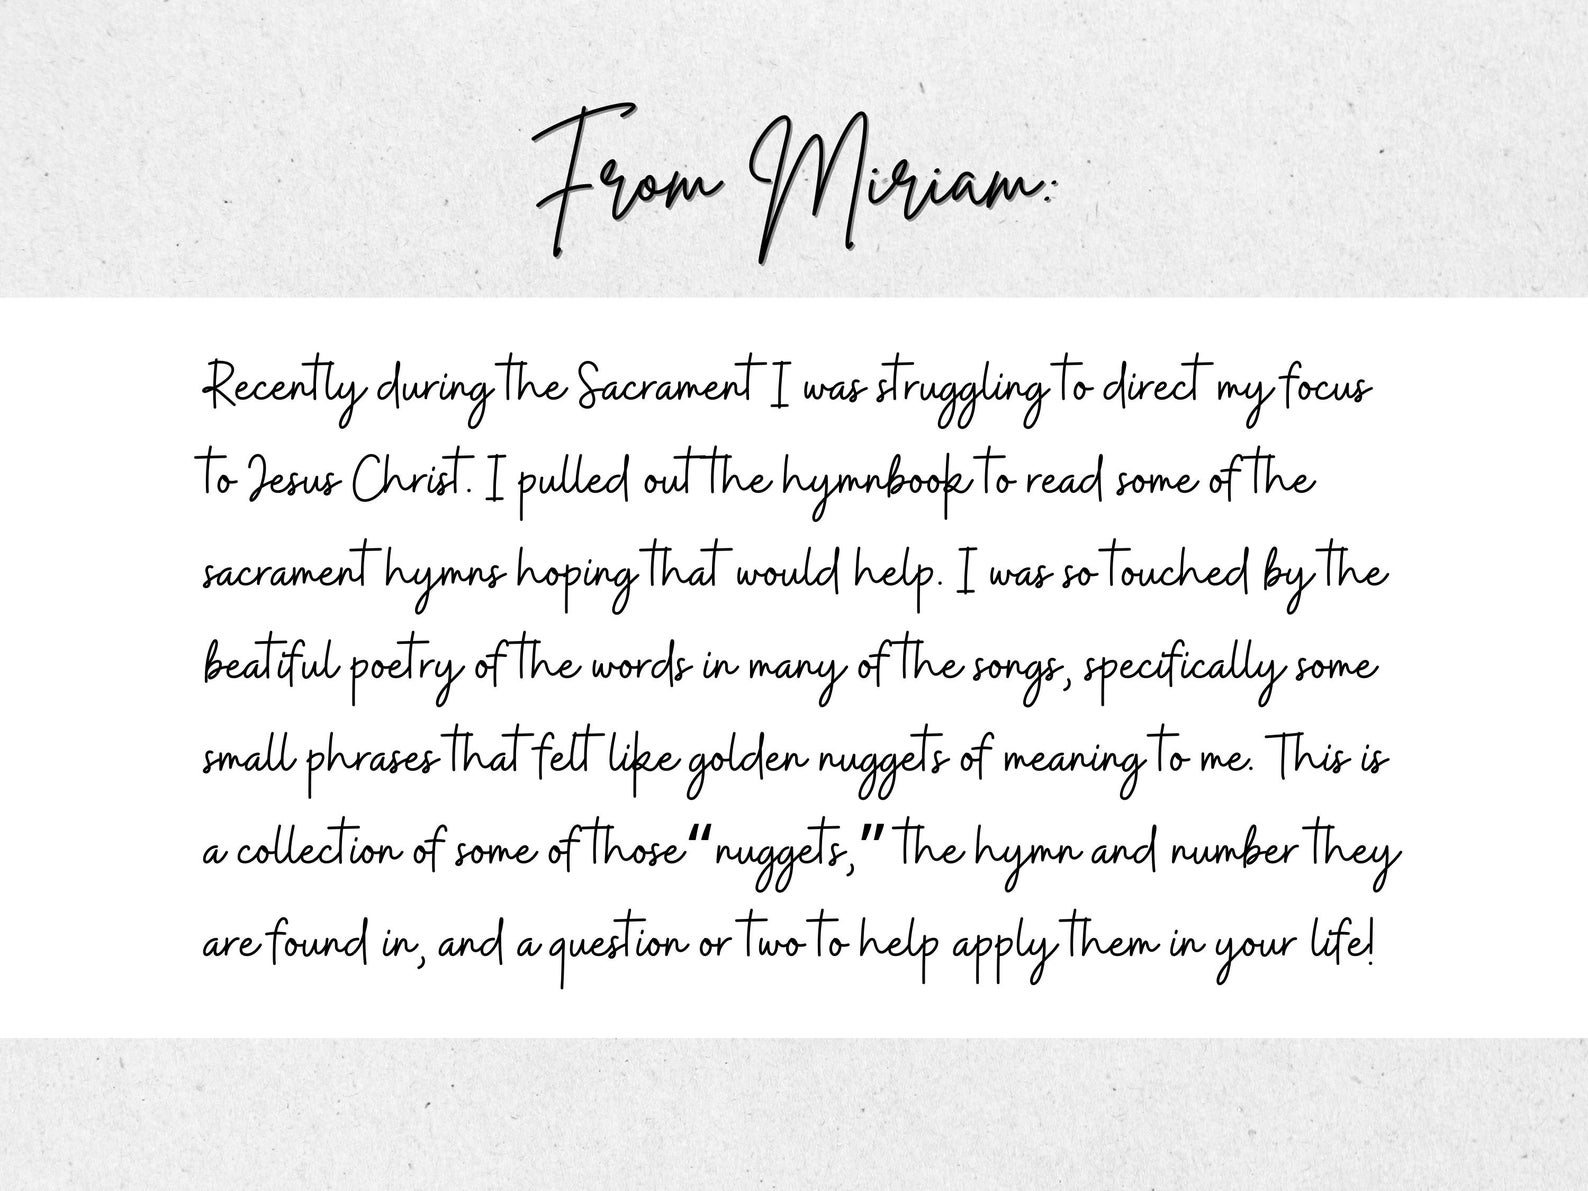 From Miriam:
Recently during the Sacrament I was struggling to direct my focus
to Jesus Christ. I pulled out the hymnbook to read some of the
sacrament hymns hoping that would help. I was so touched by the
beatiful poetry of the words in many of the songs, specifically some
small phrases that felt like golden nuggets of meaning to me. This is
a collection of some of those “nuggets,” the hymn and number they
are found in, and a question or two to help apply them in your life!